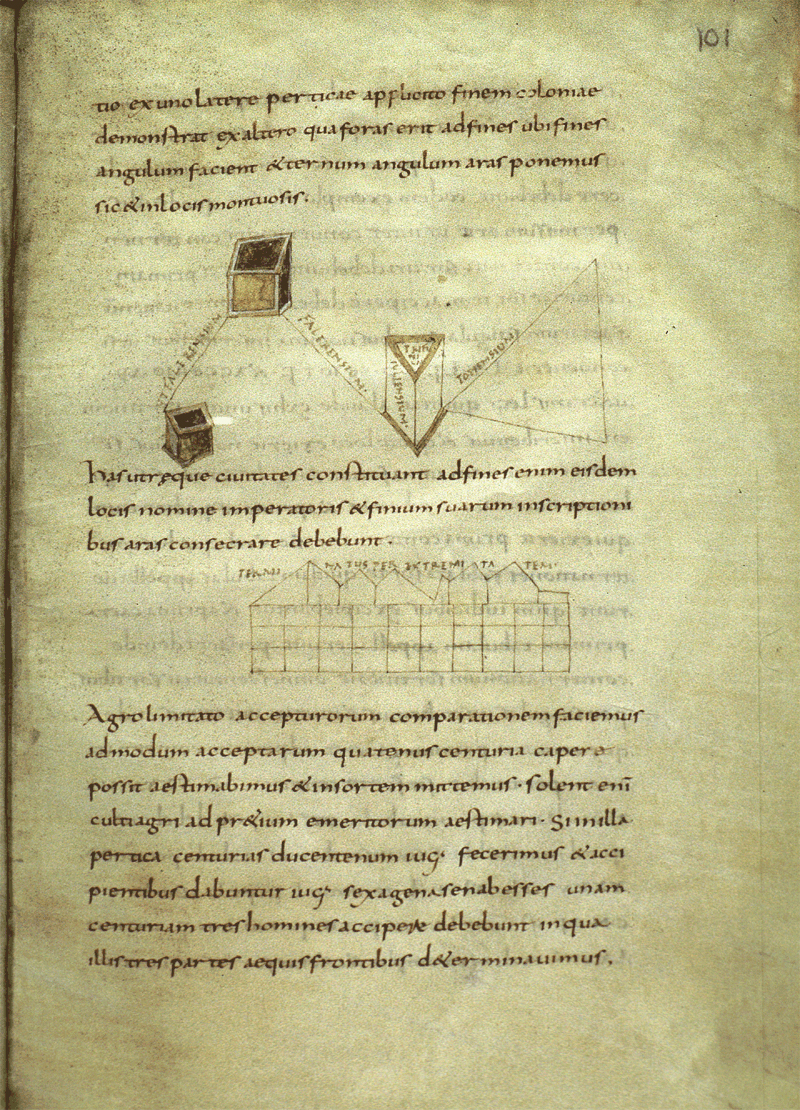 101
tio ex uno latere perticae applicito finem coloniae
demonstrat ex altero qua foras erit ad fines ubi fines
angulum facient & ternum angulum aras ponemus
sic & in locis montuosis.
FALERENSIUM
TOTENSIUM
has utreque ciuitates constituant ad fines enim eisdem
locis nomine imperatoris & finium suarum inscriptioni
bus aras consecrare debebunt.
NATUS PER EXTREMITA TEM
Agro limitato accepturorum comparationem faciemus
ad modum acceptarum quatenus centuria capere
possit aestimabimus & in sortem mittemus · solent enī
culti agri ad pr&ium emeritorum aestimari · Si in illa
pertica centurias ducentenum iug· fecerimus & acci
pientibus dabuntur iug· sexagena sena besses unam
centuriam tres homines accipere debebunt in qua
illis tres partes aequis frontibus d&erminauimus.